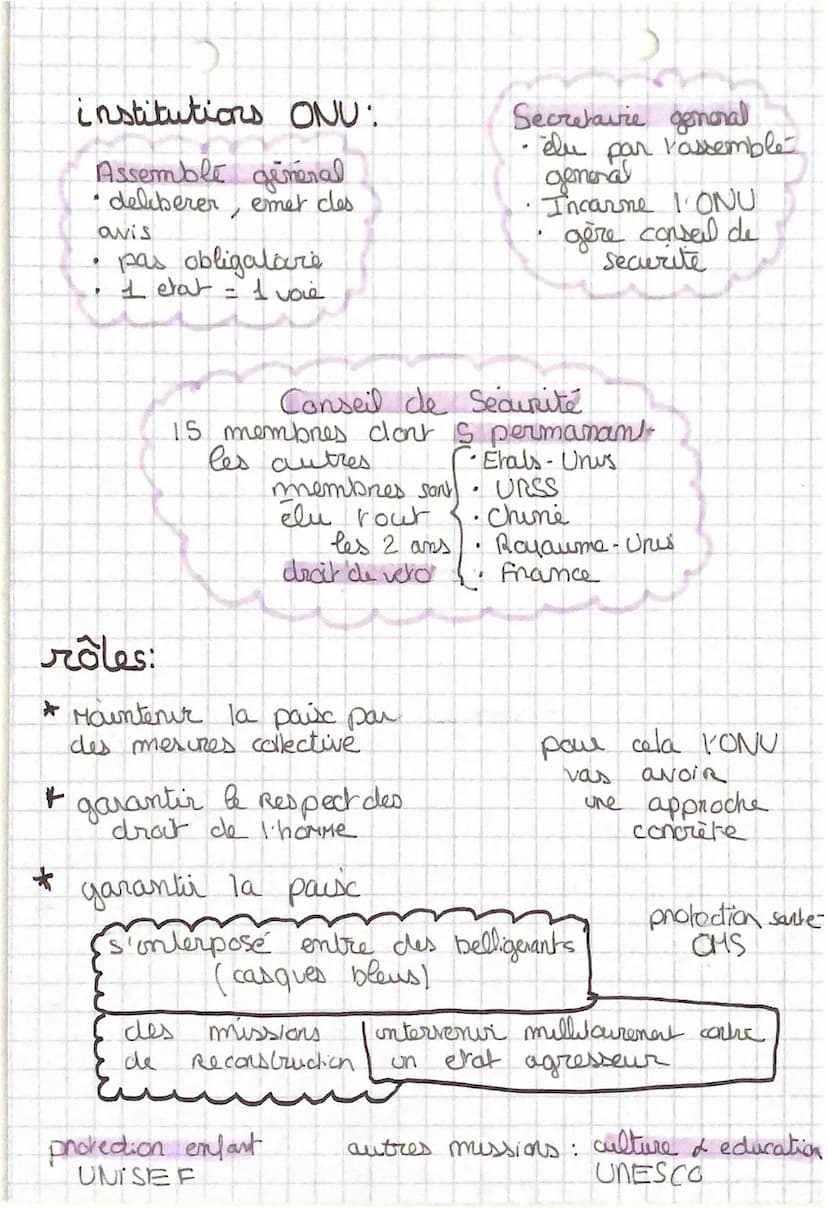 institutions ONU :
Assemblé général
• deliberer, emet des
avis
• pas obligatoire
• 1 etat = 1 voie
Secretaire general
• élu par l'assemblé
general
• Incarne l'ONU
• gère conseil de
securité
Conseil de Sécurité
15 membres dont 5 permanant
les autres
membres sont
élu tout
les 2 ans
droit de veto
• Etats-Unis
• URSS
• Chine
• Royaume-Unis
• France
rôles:
* Maintenir la paix par
des mesures collective
* garantir le Respect des
droit de l'homme
* garantir la paix
pour cela l'ONU
vas avoir
une approche
concrète
s'interposé entre des belligerants
(casques bleus)
protection santé
OMS
des missions
de Reconstruction
intervenir militairement contre
un etat agresseur
protection enfant
UNISEF
autres missions : culture & education
UNESCO